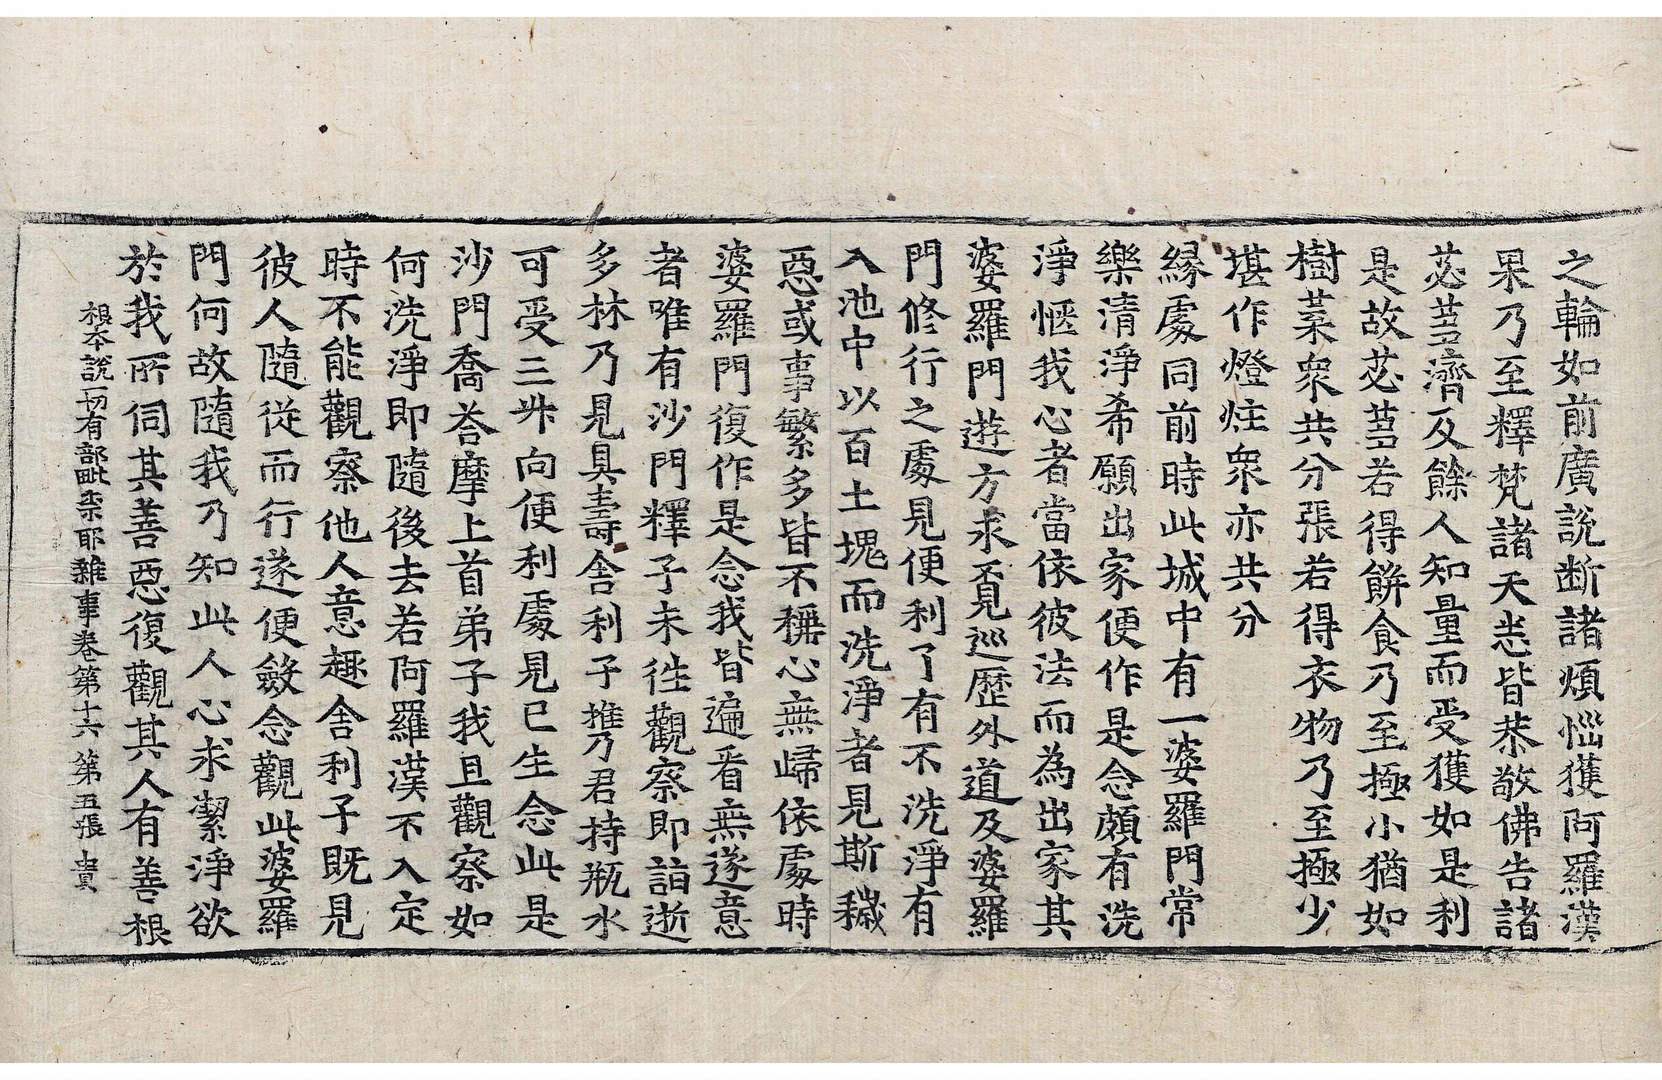 之輪如前廣說断諸煩惱獲阿羅漢
果乃至釋梵諸天悉皆恭敬佛告諸
苾蒭濟及餘人知量而受獲如是利
是故苾蒭若得餅食乃至極小猶如
樹葉衆共分張若得衣物乃至極少
堪作燈炷衆亦共分
緣處同前時此城中有一婆羅門常
樂清淨希願出家便作是念頗有洗
淨愜我心者當依彼法而為出家其
婆羅門遊方求覓巡歷外道及婆羅
門修行之處見便利了有不洗淨有
入池中以百土塊而洗淨者見斯穢
惡或事繁多皆不稱心無歸依處時
婆羅門復作是念我皆遍看無遂意
者唯有沙門釋子未往觀察即詣逝
多林乃見具壽舍利子推乃君持瓶水
可受三升向便利處見已生念此是
沙門喬荅摩上首弟子我且觀察如
何洗淨即隨後去若阿羅漢不入定
時不能觀察他人意趣舍利子既見
彼人隨從而行遂便斂念觀此婆羅
門何故隨我乃知此人心求潔淨欲
於我所伺其善惡復觀其人有善根
根本說一切有部毗柰耶雜事卷第十六 第五張 貴